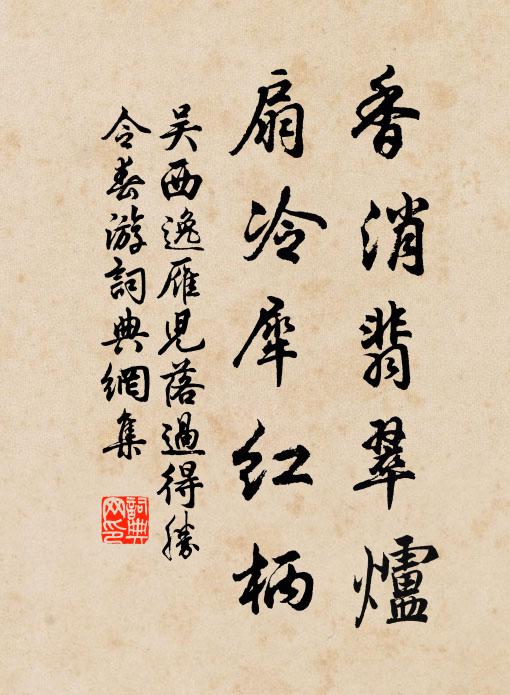 香消翡翠爐
扇冷犀紅柄
吴西逸雁兒落過得勝
令春游詞典網集
詞典
网印